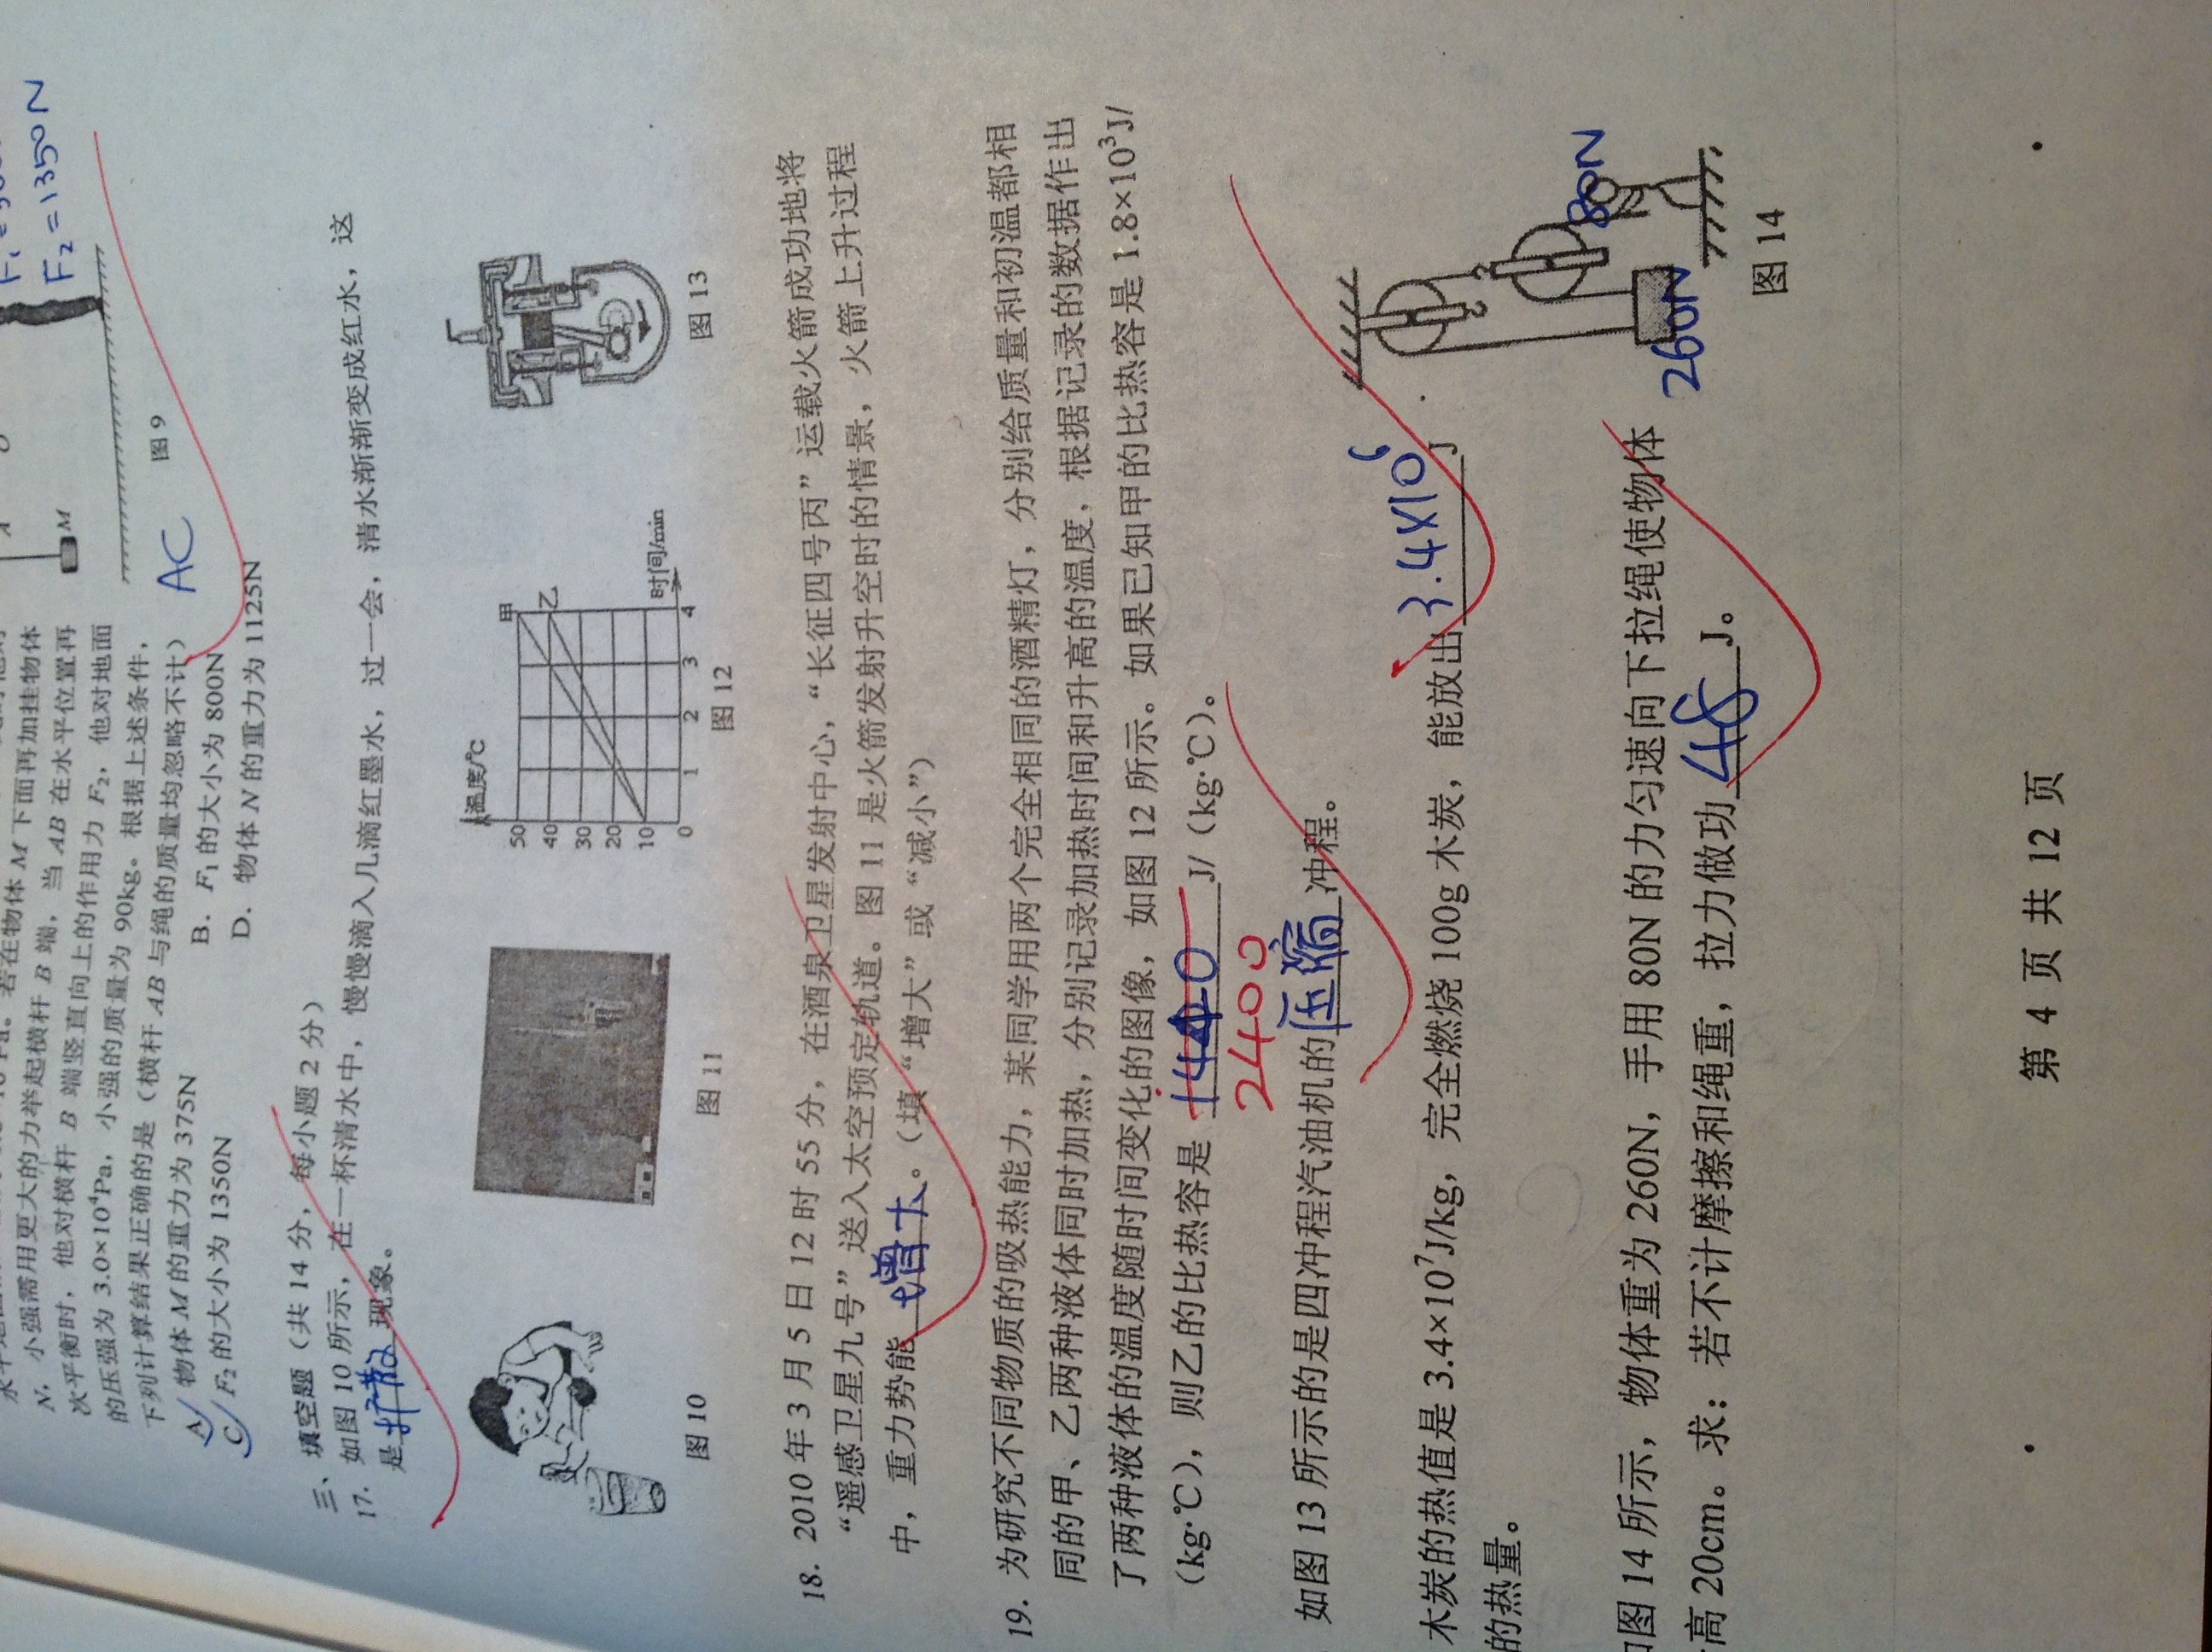 水平地面
Pa。若在物体 M 下面再加挂物体
N，小强需用更大的力举起横杆 B 端，当 AB 在水平位置再
次平衡时，他对横杆 B 端竖直向上的作用力 F₂，他对地面
的压强为 3.0×10⁴Pa，小强的质量为 90kg。根据上述条件，
下列计算结果正确的是（横杆 AB 与绳的质量均忽略不计） AC
A 物体 M 的重力为 375N
B．F₁ 的大小为 800N
C F₂ 的大小为 1350N
D．物体 N 的重力为 1125N
M
F₂=1350N
图 9
三、填空题（共 14 分，每小题 2 分）
17. 如图 10 所示，在一杯清水中，慢慢滴入几滴红墨水，过一会，清水渐渐变成红水，这
是扩散现象。
温度/℃
甲
乙
50
40
30
20
10
0 1 2 3 4
时间/min
图 10
图 11
图 12
图 13
18. 2010 年 3 月 5 日 12 时 55 分，在酒泉卫星发射中心，“长征四号丙”运载火箭成功地将
“遥感卫星九号”送入太空预定轨道。图 11 是火箭发射升空时的情景，火箭上升过程
中，重力势能增大。（填“增大”或“减小”）
19. 为研究不同物质的吸热能力，某同学用两个完全相同的酒精灯，分别给质量和初温都相
同的甲、乙两种液体同时加热，分别记录加热时间和升高的温度，根据记录的数据作出
了两种液体的温度随时间变化的图像，如图 12 所示。如果已知甲的比热容是 1.8×10³J/
（kg·℃），则乙的比热容是 1440 J/（kg·℃）。
2400
如图 13 所示的是四冲程汽油机的压缩冲程。
木炭的热值是 3.4×10⁷J/kg，完全燃烧 100g 木炭，能放出 3.4×10⁶ J
的热量。
图 14 所示，物体重为 260N，手用 80N 的力匀速向下拉绳使物体
高 20cm。求：若不计摩擦和绳重，拉力做功 48 J。
80N
260N
图 14
第 4 页 共 12 页